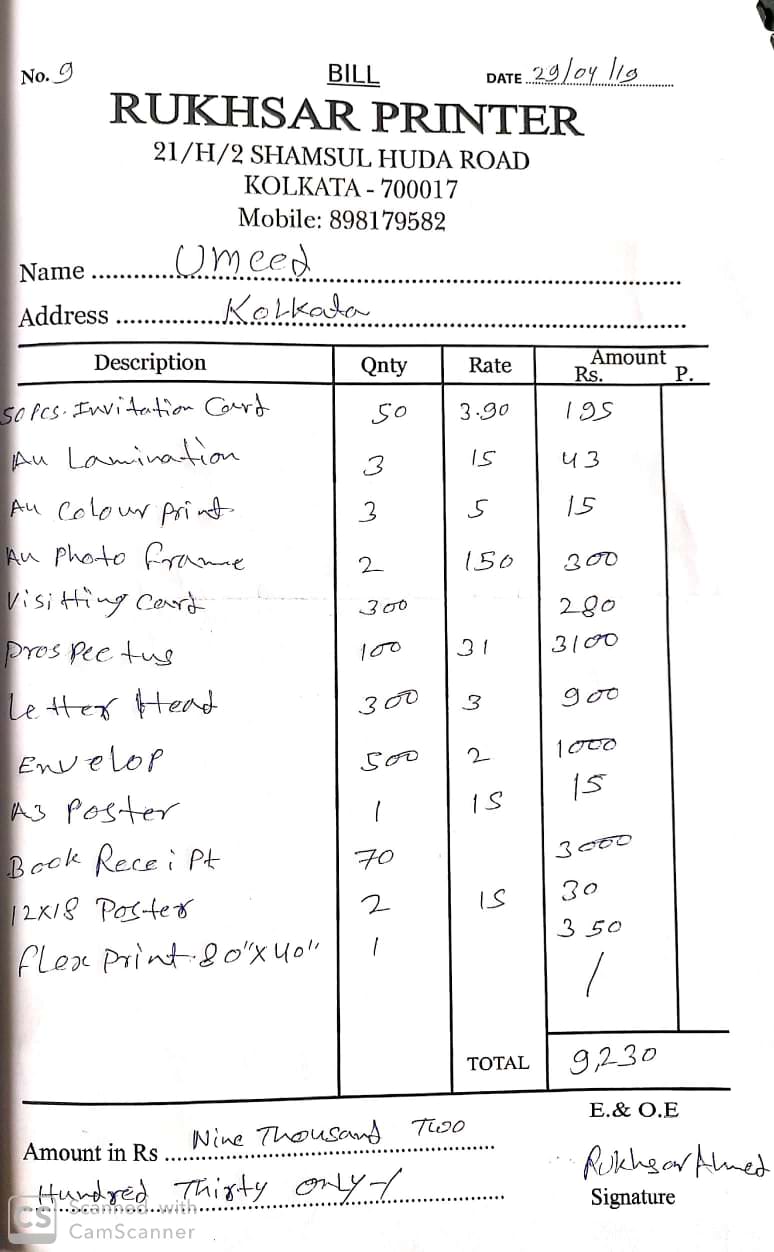 No. 9 BILL DATE 29/04/19
RUKHSAR PRINTER
21/H/2 SHAMSUL HUDA ROAD
KOLKATA - 700017
Mobile: 898179582
Name Umeed
Address Kolkata
Description Qnty Rate Amount Rs. P.
50 Pcs. Invitation Card 50 3.90 195
A4 Lamination 3 15 43
A4 Colour print 3 5 15
A4 Photo frame 2 150 300
Visitting Card 300 280
Prospectus 100 31 3100
Letter Head 300 3 900
Envelop 500 2 1000
A3 Poster 1 15 15
Book Receipt 70 3000
12x18 Poster 2 15 30
flex print 80"x40" 1 350
/
TOTAL 9,230
E.& O.E
Amount in Rs Nine Thousand Two
Hundred Thirty only-/
Rukhsar Ahmed
Signature
CS Scanned with
CamScanner